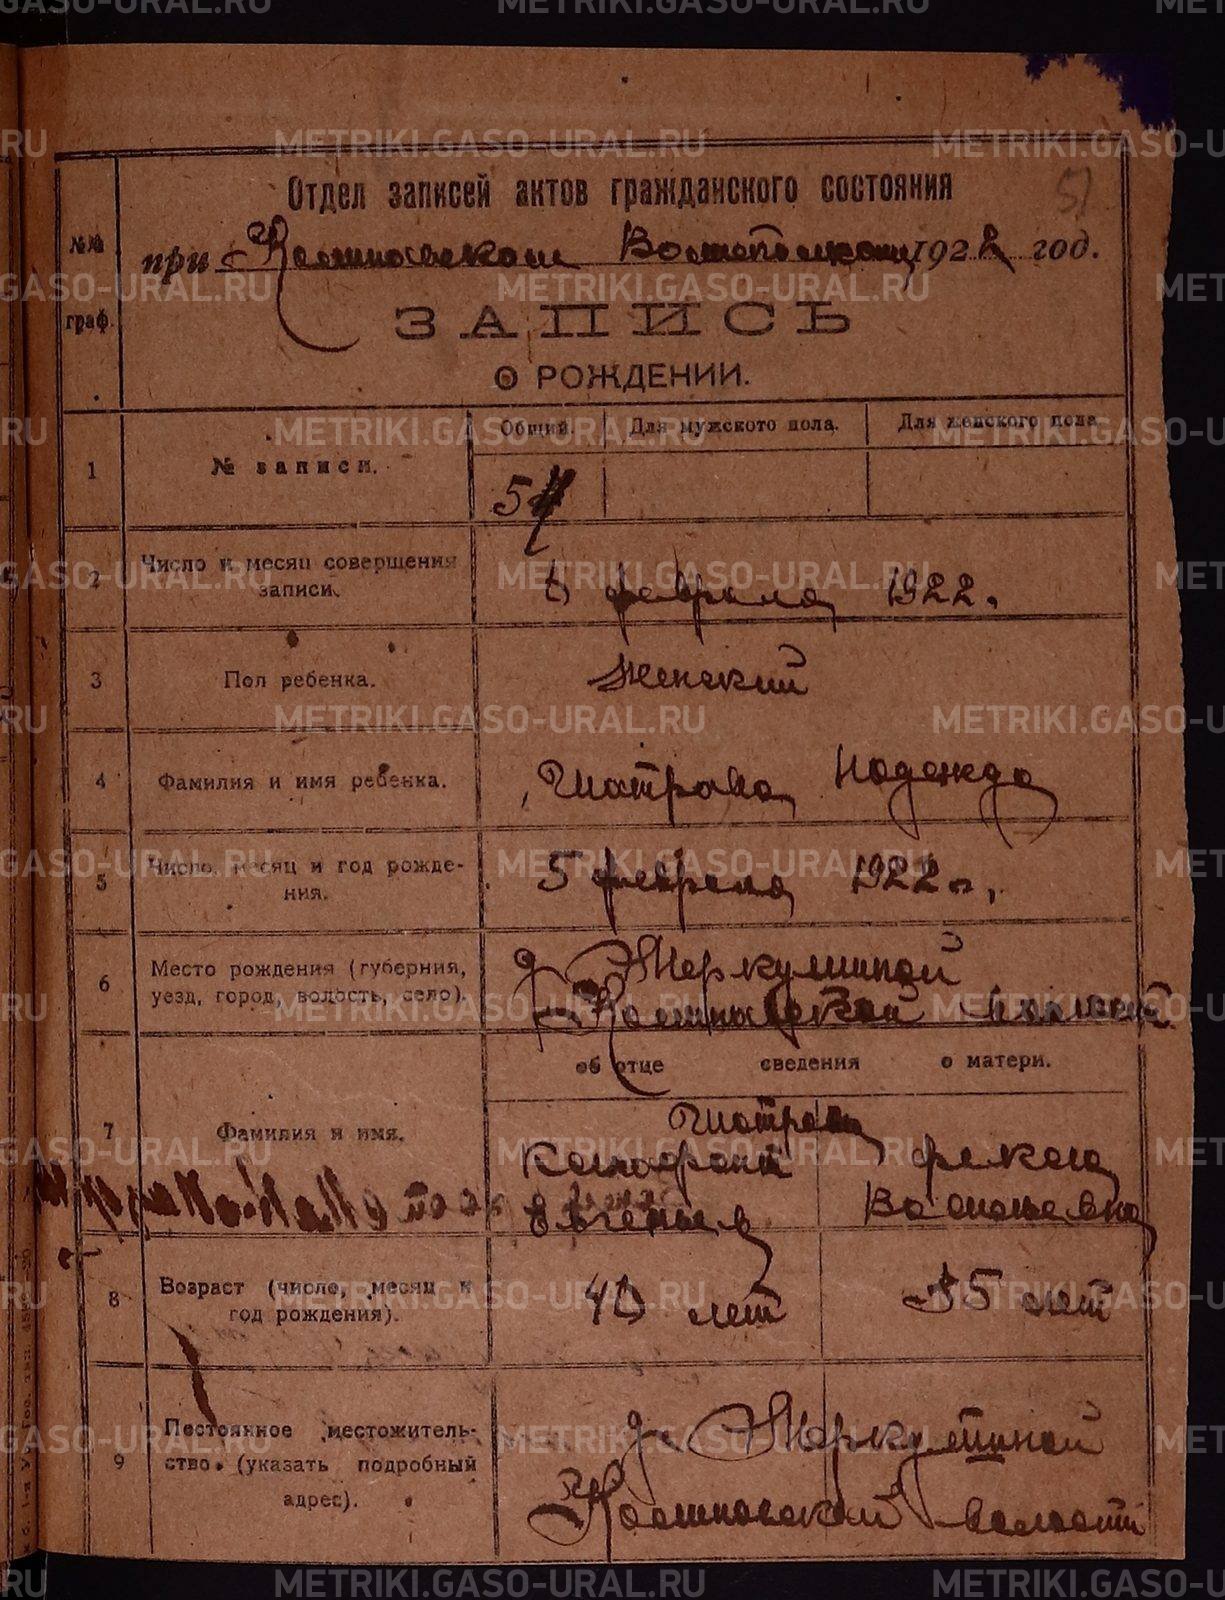 51
Отдел записей актов гражданского состояния
№№ граф.
при Волисполкоме 1922 год.
ЗАПИСЬ
О РОЖДЕНИИ.
1
№ записи.
Общий.
Для мужского пола.
Для женского пола
2
Число и месяц совершения
записи.
6 февраля 1922.
3
Пол ребенка.
Женский
4
Фамилия и имя ребенка.
Шатрова Надежда
5
Число, месяц и год рожде-
ния.
5 февраля 1922 г.
6
Место рождения (губерния,
уезд, город, волость, село).
д. Меркушиной
волости
об отце сведения о матери.
7
Фамилия и имя.
Шатровы
Ксенофонт
Евгеньев
Фекла
8
Возраст (число, месяц и
год рождения).
40 лет
35 лет
9
Постоянное местожитель-
ство. (указать подробный
адрес).
д. Меркушиной
волости
METRIKI.GASO-URAL.RU